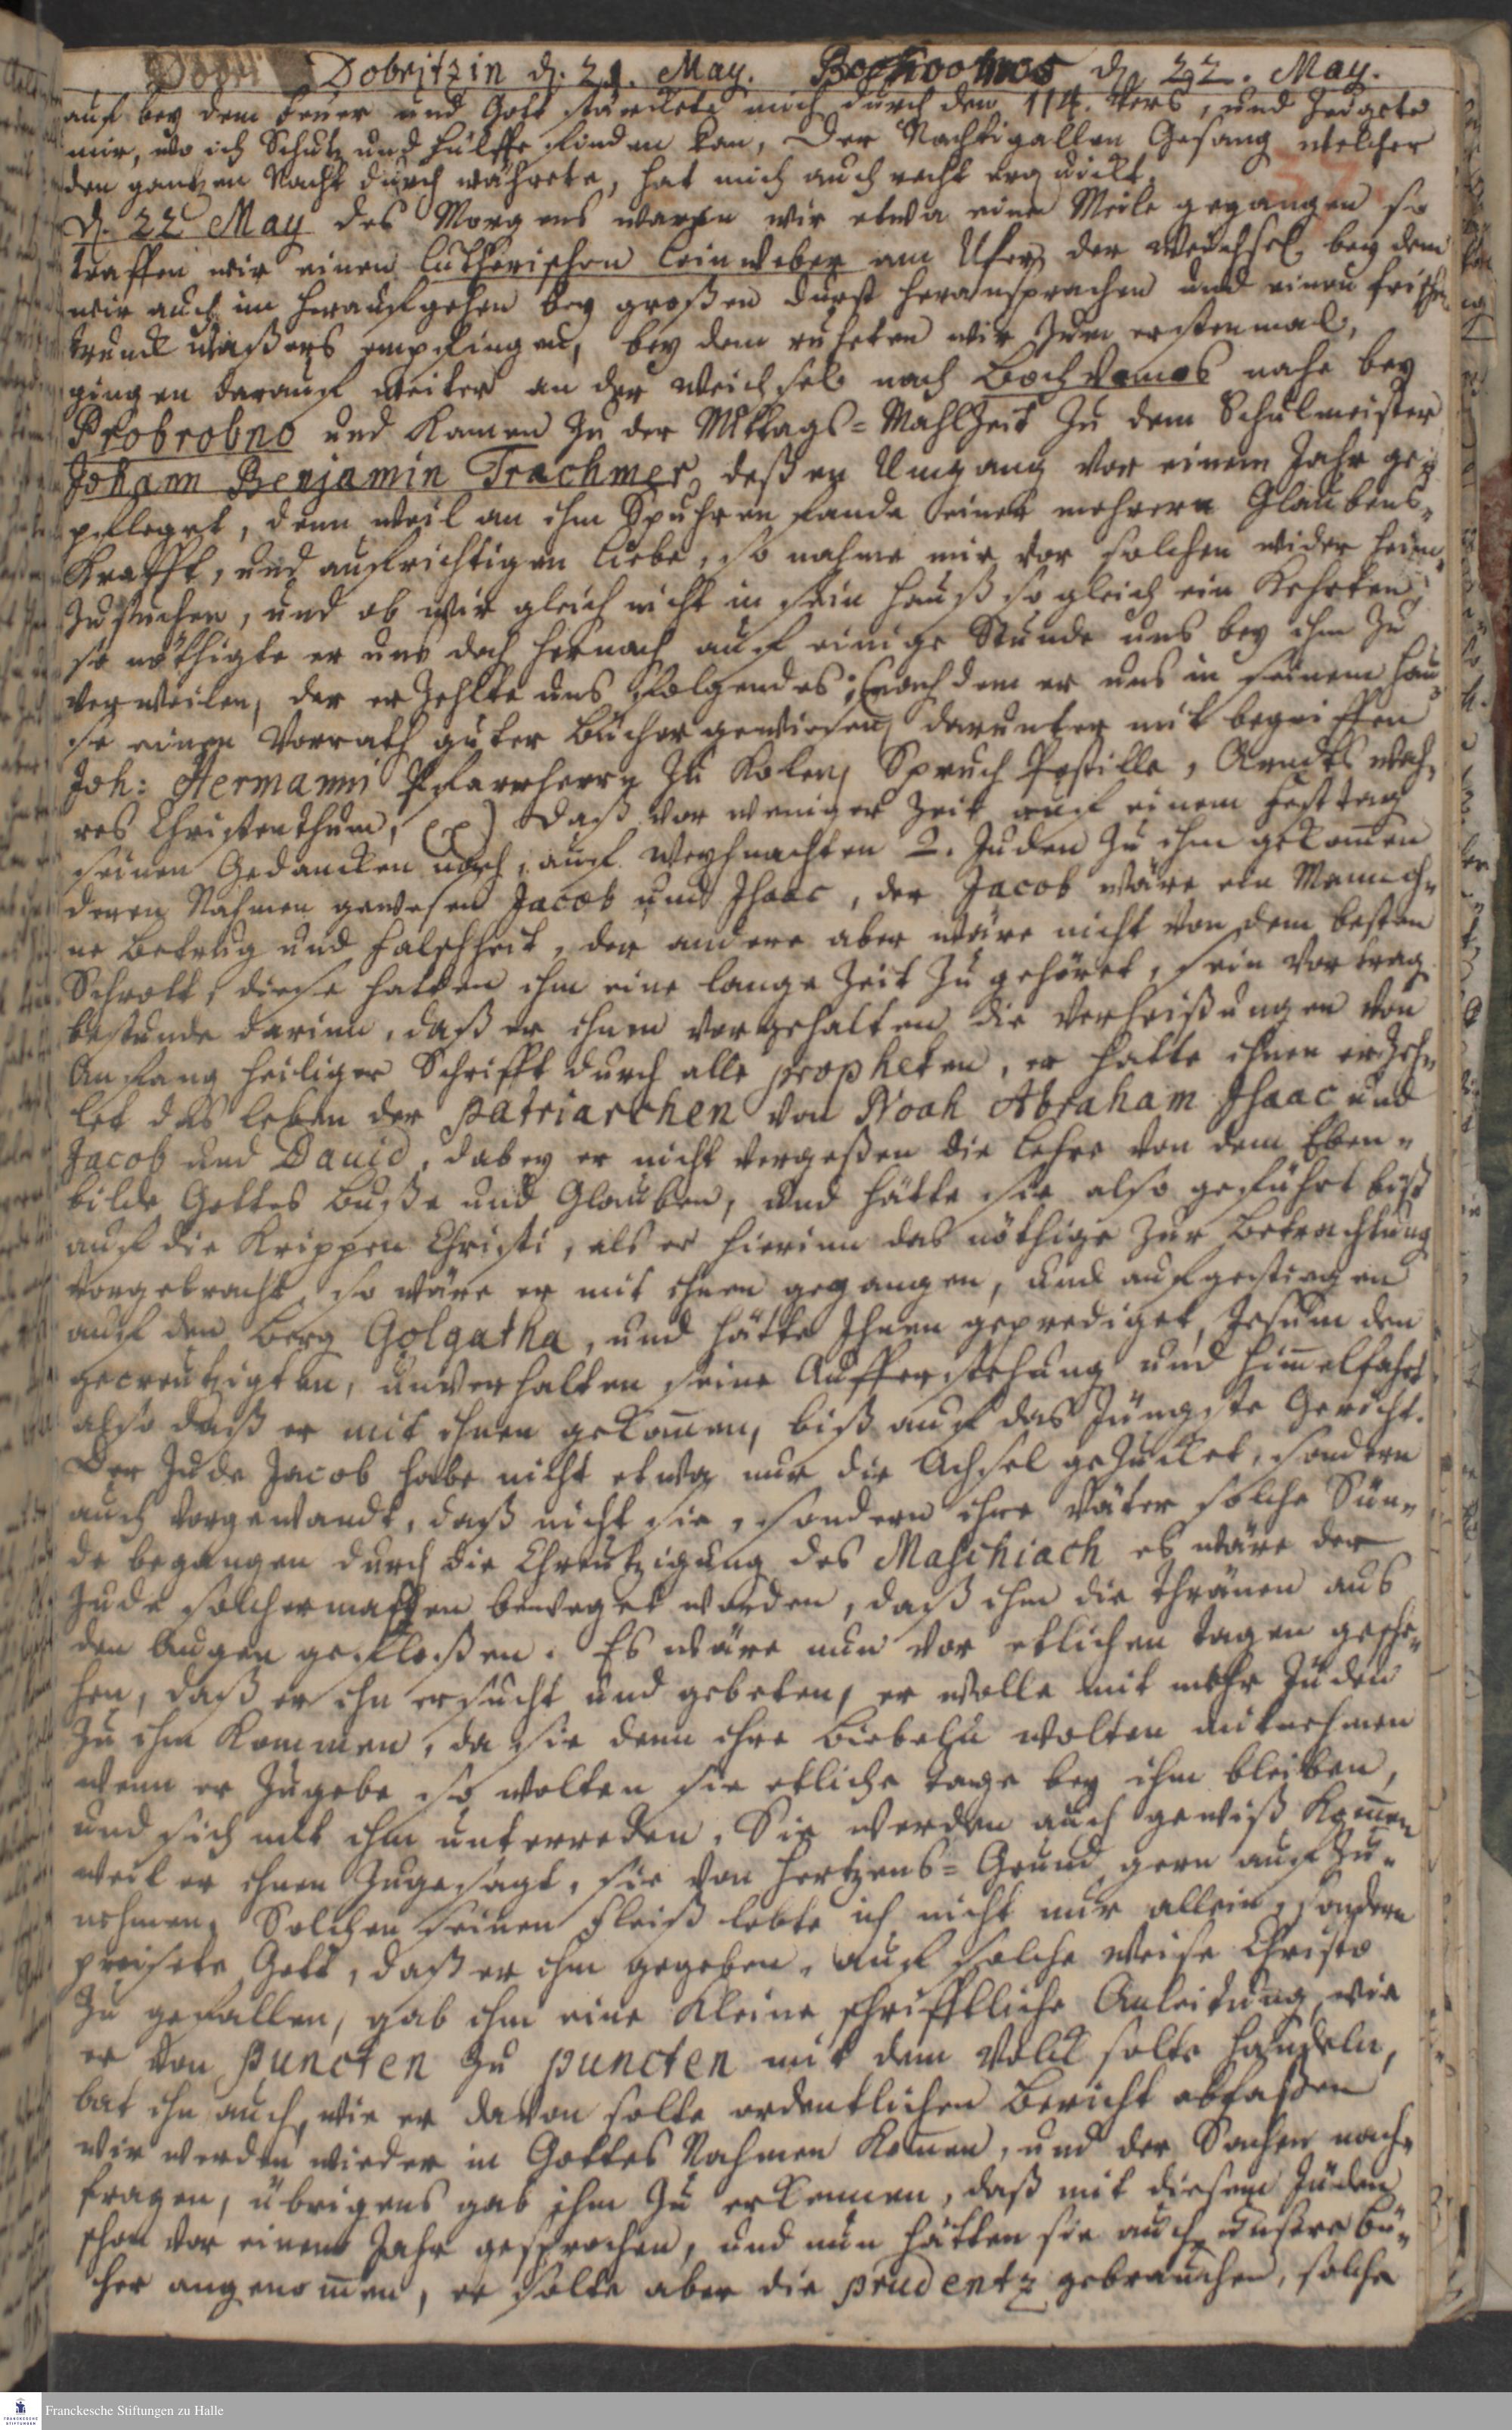 Dobri Dobritzin d. 21. May. Bochvomos d. 22. May.
auf bey dem feuer und Gott stärckete mich durch den 114. Vers, und zeigete
mir, wo ich Schutz und hülffe finden kan, Der Nachtigallen Gesang welcher
den gantzen Nacht durch währete, hat mich auch recht erquickt.
d. 22 May des Morgens waren wir etwa eine Meile gegangen so
traffen wir einen Lutherischen Leinweber am Ufer der Weichsel bey dem
wir auch im heraufgehen bey großen durst heransprachen und einen frischen
trunck waßers empfingen, bey dem ruheten wir zum erstenmal,
gingen darauf weiter an der Weichsel nach Bochvomos nahe bey
Probrobno und kamen zu der Mittags=Mahlzeit zu dem Schulmeister
Johann Benjamin Trachmer, deßen Umgang vor einem Jahr ge=
pfleget, denn weil an ihm Spuhren fande einer mehrern Glaubens=
Krafft, und aufrichtigen Liebe, so nahme mir vor solchen wider heim=
zusuchen, und ob wir gleich nicht in sein hauß sogleich ein kehrten,
so nöthigte er uns doch hernach auf einige Stunde uns bey ihm zu
verweilen, der erzehlte uns folgendes; (nach dem er uns in seinem hau=
se einen Vorrath guter Bücher gewiesen, darunter mit begriffen
Joh: Hermanni Pfarrherrn zu Koben, Spruch Postille, Arndts wah=
res Christenthum, ) Daß vor weniger Zeit auf einem festtag
seinen Gedancken nach, auf Weyhnachten 2. Juden zu ihm gekom̄en
deren Nahmen gewesen Jacob und Isaac, der Jacob wäre ein Mann oh=
ne Betrug und falschheit, der andere aber wäre nicht von dem besten
Schrott, diese hatten ihm eine lange Zeit zu gehöret, sein Vortrag
bestunde darinn, daß er ihnen vorgehalten die Verheißungen von
Anfang heiliger Schrifft durch alle propheten, er hatte ihnen erzeh=
let das Leben der patriarchen von Noah Abraham Isaac und
Jacob und Dauid, dabey er nicht vergeßen die Lehre von dem Eben=
bilde Gottes Buße und Glauben, und hätte sie also geführt biß
auf die Krippen Christi, als er hierinn das nöthige zur Betrachtung
vorgebracht, so wäre er mit ihnen gegangen, und aufgestiegen
auf den Berg Golgatha, und hätte Ihnen geprediget, Jesum den
gecreutzigten, unverhalten seine Aufferstehung und Him̄elfahrt
also daß er mit ihnen gekom̄en, biß auf das Jüngste Gericht.
Der Jude Jacob habe nicht etwa nur die Achsel gezucket, sondern
auch vorgewandt, daß nicht sie, sondern ihre Väter solche Sün=
de begangen durch die Creutzigung des Maschiach es wäre der
Jude solchermaßen beweget worden, daß ihm die thränen aus
den Augen gefloßen. Es wäre nun vor etlichen tagen gesche=
hen, daß er ihn ersucht und gebeten, er wolle mit mehr Juden
zu ihm kommen, da sie denn ihre Biebeln wolten mitnehmen
wenn er zugebe so wolten sie etliche tage bey ihm bleiben,
und sich mit ihm unterreden. Sie werden auch gewiß kom̄en
weil er ihnen zugesagt, sie von hertzens=Grund gern aufzu=
nehmen. Solchen seinen fleiß lobte ich nicht nur allein, sondern
preisete Gott, daß er ihm gegeben, auf solche Weise Christo
zu gefallen, gab ihm eine kleine schrifftliche Anleitung, wie
er von puncten zu puncten mit dem Volck solte handeln,
bat ihn auch, wie er davon solte ordentlichen Bericht abfaßen
wir werden wieder in Gottes Nahmen kom̄en, und der Sachen nach=
fragen, übrigens gab ihm zu erkennen, daß mit diesem Juden
schon vor einem Jahr gesprochen, und nun hätten sie auch unsere Bü=
cher angenom̄en, er solte aber die prudentz gebrauchen, solche
Franckesche Stiftungen zu Halle